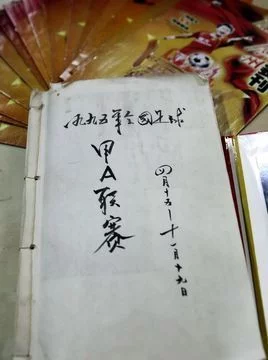 一九九五年全国足球
甲A联赛
四月十六—十一月十九日